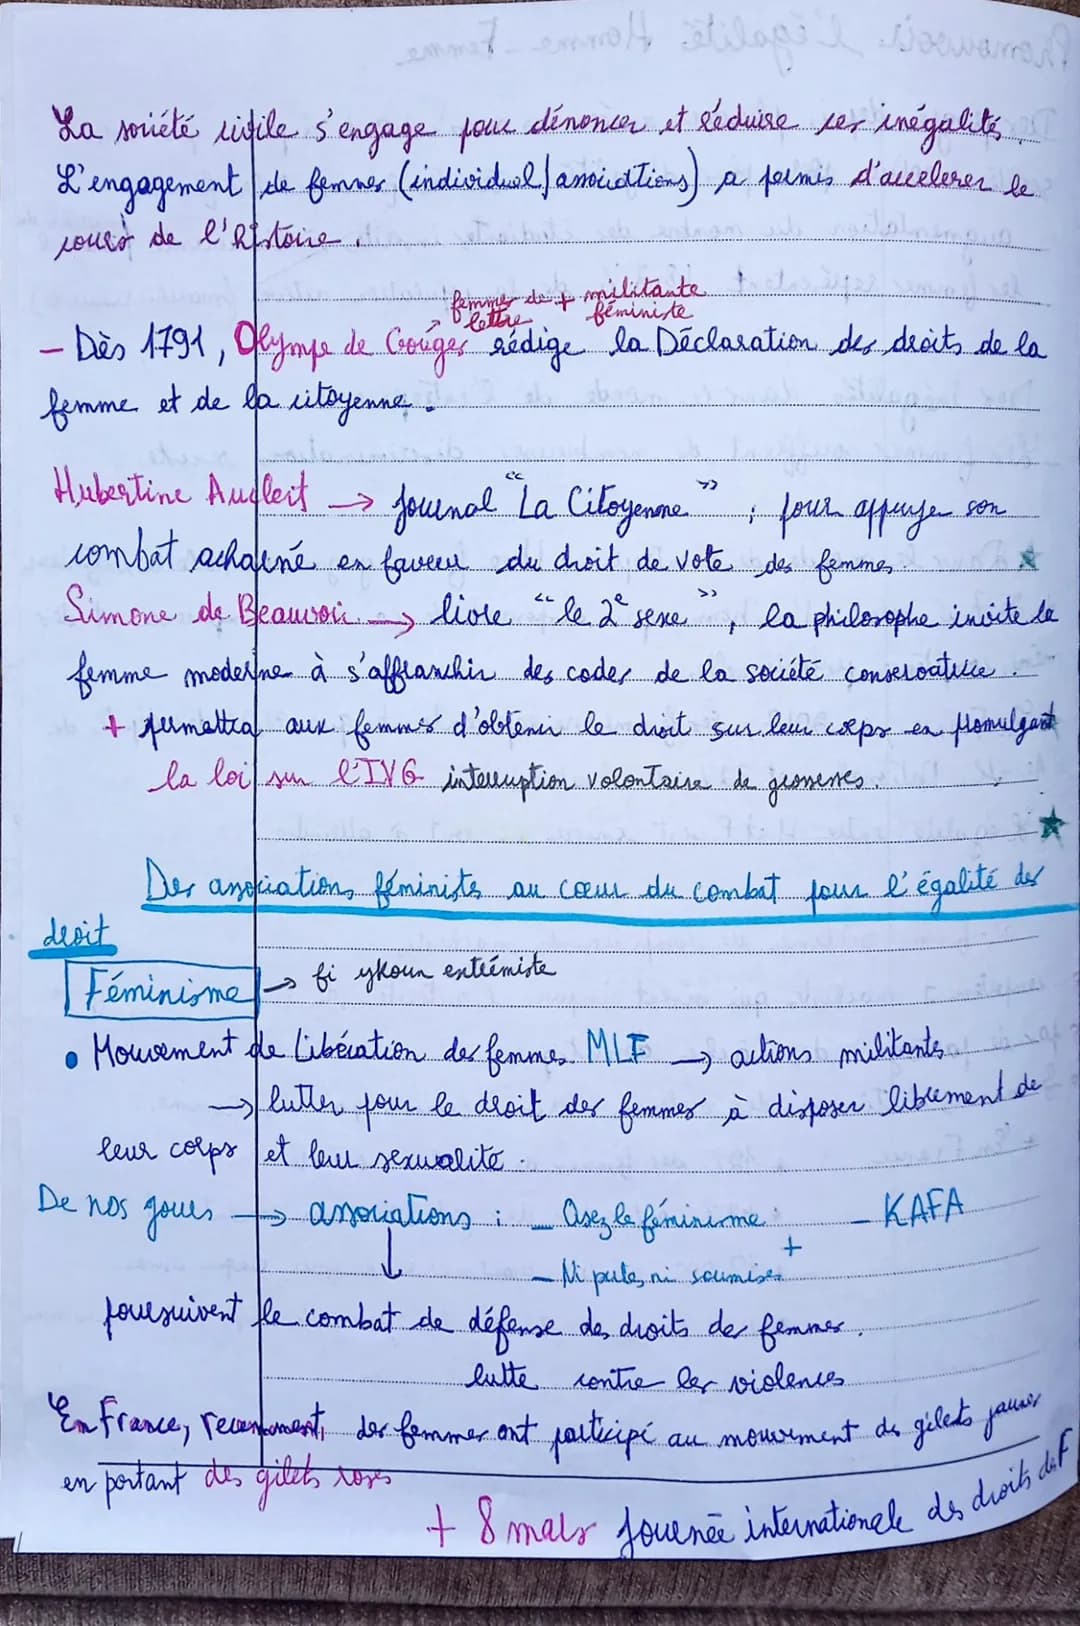 La société civile s'engage pour dénoncer et réduire ces inégalités.
L'engagement de femmes (individuel/associations) a permis d'accelerer le
cours de l'histoire.
femmes de lettre + militante féministe
- Dès 1791, Olympe de Gouges rédige la Déclaration des droits de la
femme et de la citoyenne.
Hubertine Auclert → journal "La Citoyenne" ; pour appuyer son
combat acharné en faveur du droit de vote des femmes.
Simone de Beauvoir → livre "le 2e sexe", la philosophe invite la
femme moderne à s'affranchir des codes de la société conservatrice.
+ permettra aux femmes d'obtenir le droit sur leur corps en promulgant
la loi sur l'IVG interruption volontaire de grossesses.
Des associations féministes au cœur du combat pour l'égalité des
droit
Féminisme → fi ykoun extrémiste
• Mouvement de Libération des femmes MLF → actions militantes
→ lutter pour le droit des femmes à disposer librement de
leur corps et leur sexualité.
De nos jours → associations : - Osez le féminisme - KAFA
+
- Ni putes, ni soumises
poursuivent le combat de défense des droits des femmes.
lutte contre les violences
En France, recemment, des femmes ont participé au mouvement des gilets jaunes
en portant des gilets roses
+ 8 mars journée internationale des droits des F